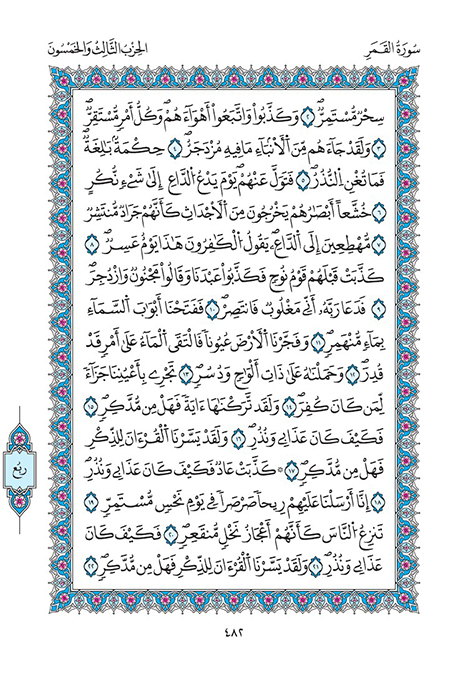 سُورَةُ القَمَرِ
الحِزْبُ الثَّالِثُ وَالخَمْسُونَ
سِحْرٌ مُّسْتَمِرٌّ ٢ وَكَذَّبُوا وَاتَّبَعُوا أَهْوَاءَهُمْ وَكُلُّ أَمْرٍ مُّسْتَقِرٌّ
٣ وَلَقَدْ جَاءَهُم مِّنَ الْأَنۢبَاءِ مَا فِيهِ مُزْدَجَرٌ ٤ حِكْمَةٌ بَالِغَةٌ
فَمَا تُغْنِ النُّذُرُ ٥ فَتَوَلَّ عَنْهُمْ يَوْمَ يَدْعُ الدَّاعِ إِلَى شَيْءٍ نُّكُرٍ
٦ خُشَّعاً أَبْصَارُهُمْ يَخْرُجُونَ مِنَ الْأَجْدَاثِ كَأَنَّهُمْ جَرَادٌ مُّنتَشِرٌ
٧ مُّهْطِعِينَ إِلَى الدَّاعِ يَقُولُ الْكَافِرُونَ هَذَا يَوْمٌ عَسِرٌ ٨
كَذَّبَتْ قَبْلَهُمْ قَوْمُ نُوحٍ فَكَذَّبُوا عَبْدَنَا وَقَالُوا مَجْنُونٌ وَازْدُجِرَ
٩ فَدَعَا رَبَّهُ أَنِّي مَغْلُوبٌ فَانتَصِرْ ١٠ فَفَتَحْنَا أَبْوَابَ السَّمَاءِ
بِمَاءٍ مُّنْهَمِرٍ ١١ وَفَجَّرْنَا الْأَرْضَ عُيُوناً فَالْتَقَى الْمَاءُ عَلَى أَمْرٍ قَدْ
قُدِرَ ١٢ وَحَمَلْنَاهُ عَلَى ذَاتِ أَلْوَاحٍ وَدُسُرٍ ١٣ تَجْرِي بِأَعْيُنِنَا جَزَاءً
لِّمَن كَانَ كُفِرَ ١٤ وَلَقَد تَّرَكْنَاهَا ءَايَةً فَهَلْ مِن مُّدَّكِرٍ ١٥
فَكَيْفَ كَانَ عَذَابِي وَنُذُرِ ١٦ وَلَقَدْ يَسَّرْنَا الْقُرْءَانَ لِلذِّكْرِ
فَهَلْ مِن مُّدَّكِرٍ ١٧ كَذَّبَتْ عَادٌ فَكَيْفَ كَانَ عَذَابِي وَنُذُرِ
١٨ إِنَّا أَرْسَلْنَا عَلَيْهِمْ رِيحاً صَرْصَراً فِي يَوْمِ نَحْسٍ مُّسْتَمِرٍّ ١٩
تَنزِعُ النَّاسَ كَأَنَّهُمْ أَعْجَازُ نَخْلٍ مُّنقَعِرٍ ٢٠ فَكَيْفَ كَانَ
عَذَابِي وَنُذُرِ ٢١ وَلَقَدْ يَسَّرْنَا الْقُرْءَانَ لِلذِّكْرِ فَهَلْ مِن مُّدَّكِرٍ ٢٢
ربع
٤٨٢